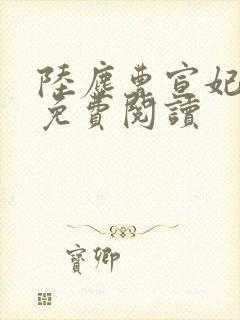 陸塵曹宣妃
免費閱讀
寶卿